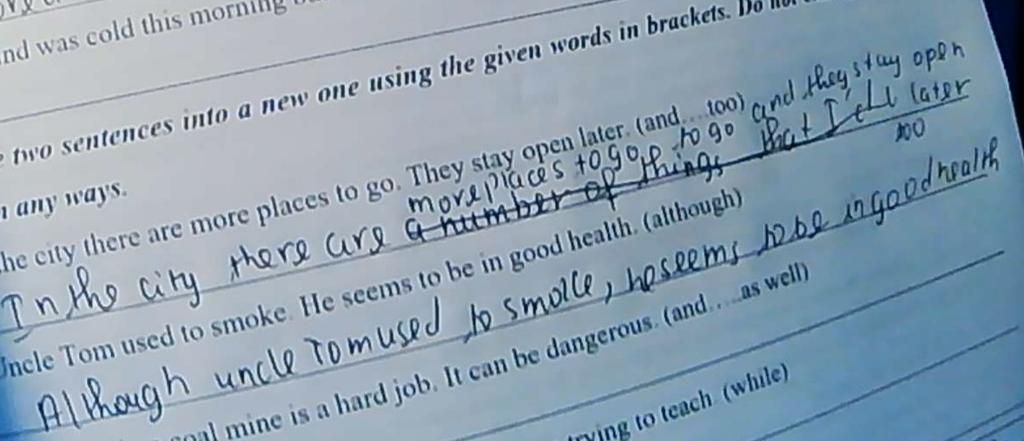 nd was cold this morning
two sentences into a new one using the given words in brackets. Do
any ways.
he city there are more places to go. They stay open later. (and....too)
and they stay open
more places to go to go
later
In the city there are a number of things that I'll
too
Uncle Tom used to smoke. He seems to be in good health. (although)
Although uncle Tom used to smoke, he seems to be in good health
coal mine is a hard job. It can be dangerous. (and....as well)
trying to teach. (while)